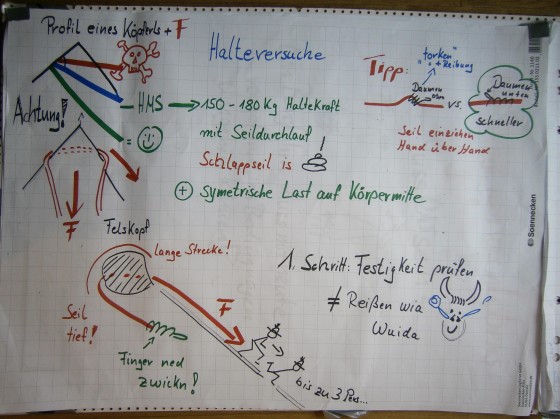 Profil eines Köpferls + F
Halteversuche
"torken"
+ Reibung
Tipp:
Daumen
obn
vs.
Daumen
unten
schneller
Seil einziehen
Hand über Hand
Achtung!
HMS → 150 - 180 Kg Haltekraft
=
mit Seildurchlauf
Schlappseil is
+ symetrische Last auf Körpermitte
F
Felskopf
lange Strecke!
Seil
tief!
F
Finger ned
zwickn!
bis zu 3 Pers...
1. Schritt: Festigkeit prüfen
≠ Reißen wia
Wuida
Soennecken